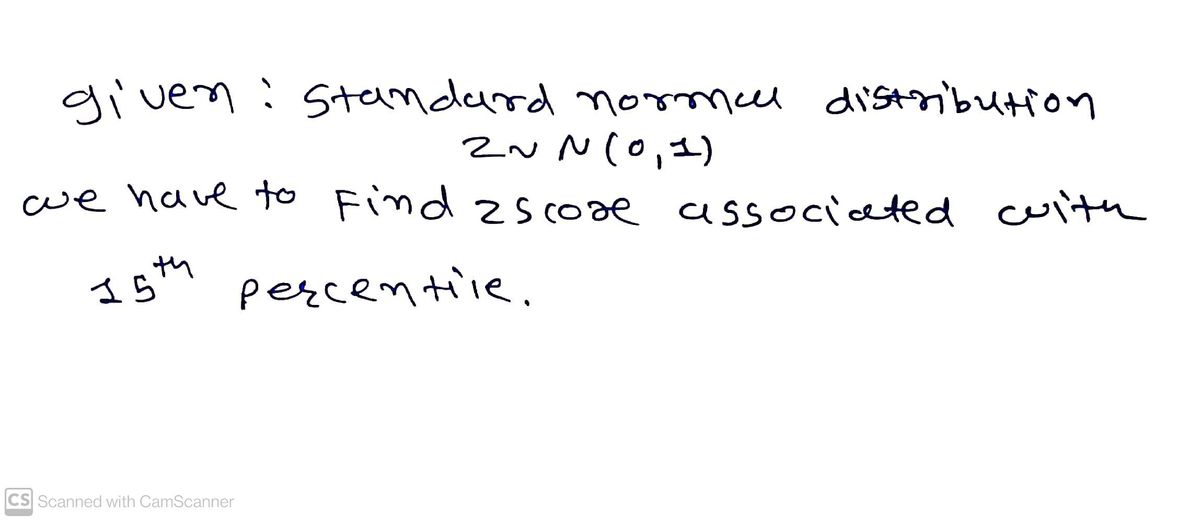 given : standard normal distribution
Z ~ N (0,1)
we have to Find z score associated with
15th percentile.
CS Scanned with CamScanner